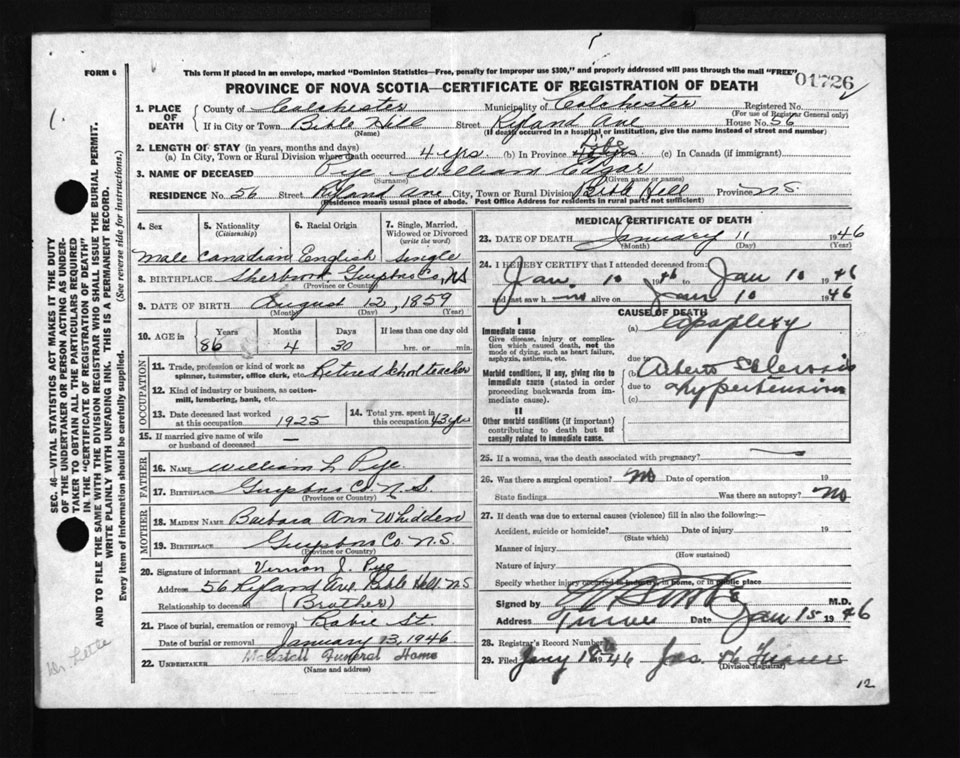 FORM 6
This form if placed in an envelope, marked "Dominion Statistics—Free, penalty for improper use $300," and properly addressed will pass through the mail "FREE"
01726
PROVINCE OF NOVA SCOTIA—CERTIFICATE OF REGISTRATION OF DEATH
1. PLACE OF DEATH
County of Colchester Municipality of Colchester Registered No.
(For use of Registrar General only)
If in City or Town Bible Hill Street Ryland Ave House No. 56
(Name) (If death occurred in a hospital or institution, give the name instead of street and number)
2. LENGTH OF STAY (in years, months and days)
(a) In City, Town or Rural Division where death occurred 4 yrs. (b) In Province Life (c) In Canada (if immigrant)
3. NAME OF DECEASED Pye William Edgar
(Surname) (Given name or names)
RESIDENCE No. 56 Street Ryland Ave City, Town or Rural Division Bible Hill Province N.S.
(Residence means usual place of abode. Post Office Address for residents in rural parts not sufficient)
4. Sex 5. Nationality (Citizenship) 6. Racial Origin 7. Single, Married, Widowed or Divorced (write the word)
Male Canadian English Single
8. BIRTHPLACE Guysboro Co, NS
(Province or Country)
9. DATE OF BIRTH August 12, 1859
(Month) (Day) (Year)
10. AGE in Years Months Days If less than one day old
86 4 30 hrs. or min.
OCCUPATION
11. Trade, profession or kind of work as spinner, teamster, office clerk, etc. Retired School teacher
12. Kind of industry or business, as cotton-mill, lumbering, bank, etc.
13. Date deceased last worked at this occupation 1925 14. Total yrs. spent in this occupation 43 yrs
15. If married give name of wife or husband of deceased —
FATHER
16. NAME William L. Pye
17. BIRTHPLACE Guysboro Co. N.S.
(Province or Country)
MOTHER
18. MAIDEN NAME Barbara Ann Whidden
19. BIRTHPLACE Guysboro Co. N.S.
(Province or Country)
20. Signature of informant Vernon J. Pye
Address 56 Ryland Ave. Bible Hill N.S
Relationship to deceased (Brother)
21. Place of burial, cremation or removal Robie St.
Date of burial or removal January 13, 1946
22. UNDERTAKER Funeral Home
(Name and address)
MEDICAL CERTIFICATE OF DEATH
23. DATE OF DEATH January 11 1946
(Month) (Day) (Year)
24. I HEREBY CERTIFY that I attended deceased from:
Jan. 10 1946 to Jan 10 1946
and last saw h im alive on Jan 10 1946
CAUSE OF DEATH
I
Immediate cause
Give disease, injury or complication which caused death, not the mode of dying, such as heart failure, asphyxia, asthenia, etc.
(a) Apoplexy
due to
Morbid conditions, if any, giving rise to immediate cause (stated in order proceeding backwards from immediate cause).
(b) Arterio Sclerosis
due to Hypertension
(c)
II
Other morbid conditions (if important) contributing to death but not causally related to immediate cause.
25. If a woman, was the death associated with pregnancy?
26. Was there a surgical operation? No Date of operation 19
State findings Was there an autopsy? No
27. If death was due to external causes (violence) fill in also the following:—
Accident, suicide or homicide? Date of injury 19
(State which)
Manner of injury
(How sustained)
Nature of injury
Specify whether injury occurred in industry, in home, or in public place
Signed by M.D.
Address Truro Date Jan 15 1946
28. Registrar's Record Number
29. Filed Jany 18th 1946 Jas. H.
(Division Registrar)
12
SEC. 46—VITAL STATISTICS ACT MAKES IT THE DUTY
OF THE UNDERTAKER OR PERSON ACTING AS UNDER-
TAKER TO OBTAIN ALL THE PARTICULARS REQUIRED
IN THE "CERTIFICATE OF REGISTRATION OF DEATH"
AND TO FILE THE SAME WITH THE DIVISION REGISTRAR WHO SHALL ISSUE THE BURIAL PERMIT.
WRITE PLAINLY WITH UNFADING INK. THIS IS A PERMANENT RECORD.
Every item of information should be carefully supplied. (See reverse side for instructions.)